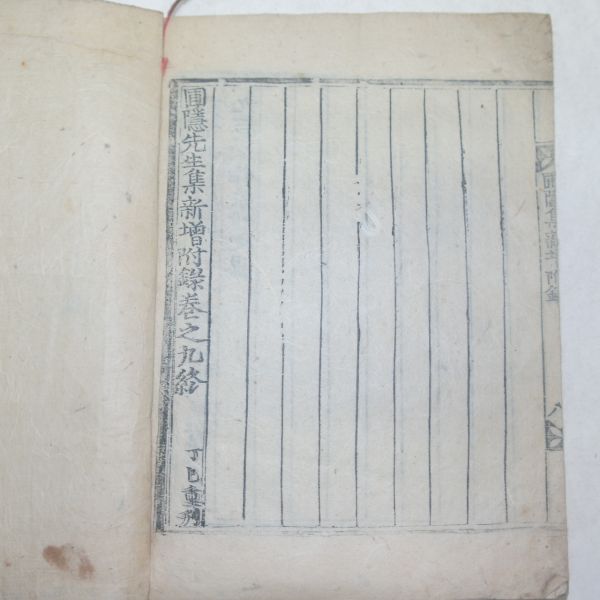 圃隱集新增附錄
八
圃隱先生集新增附錄卷之九終
丁巳重刋